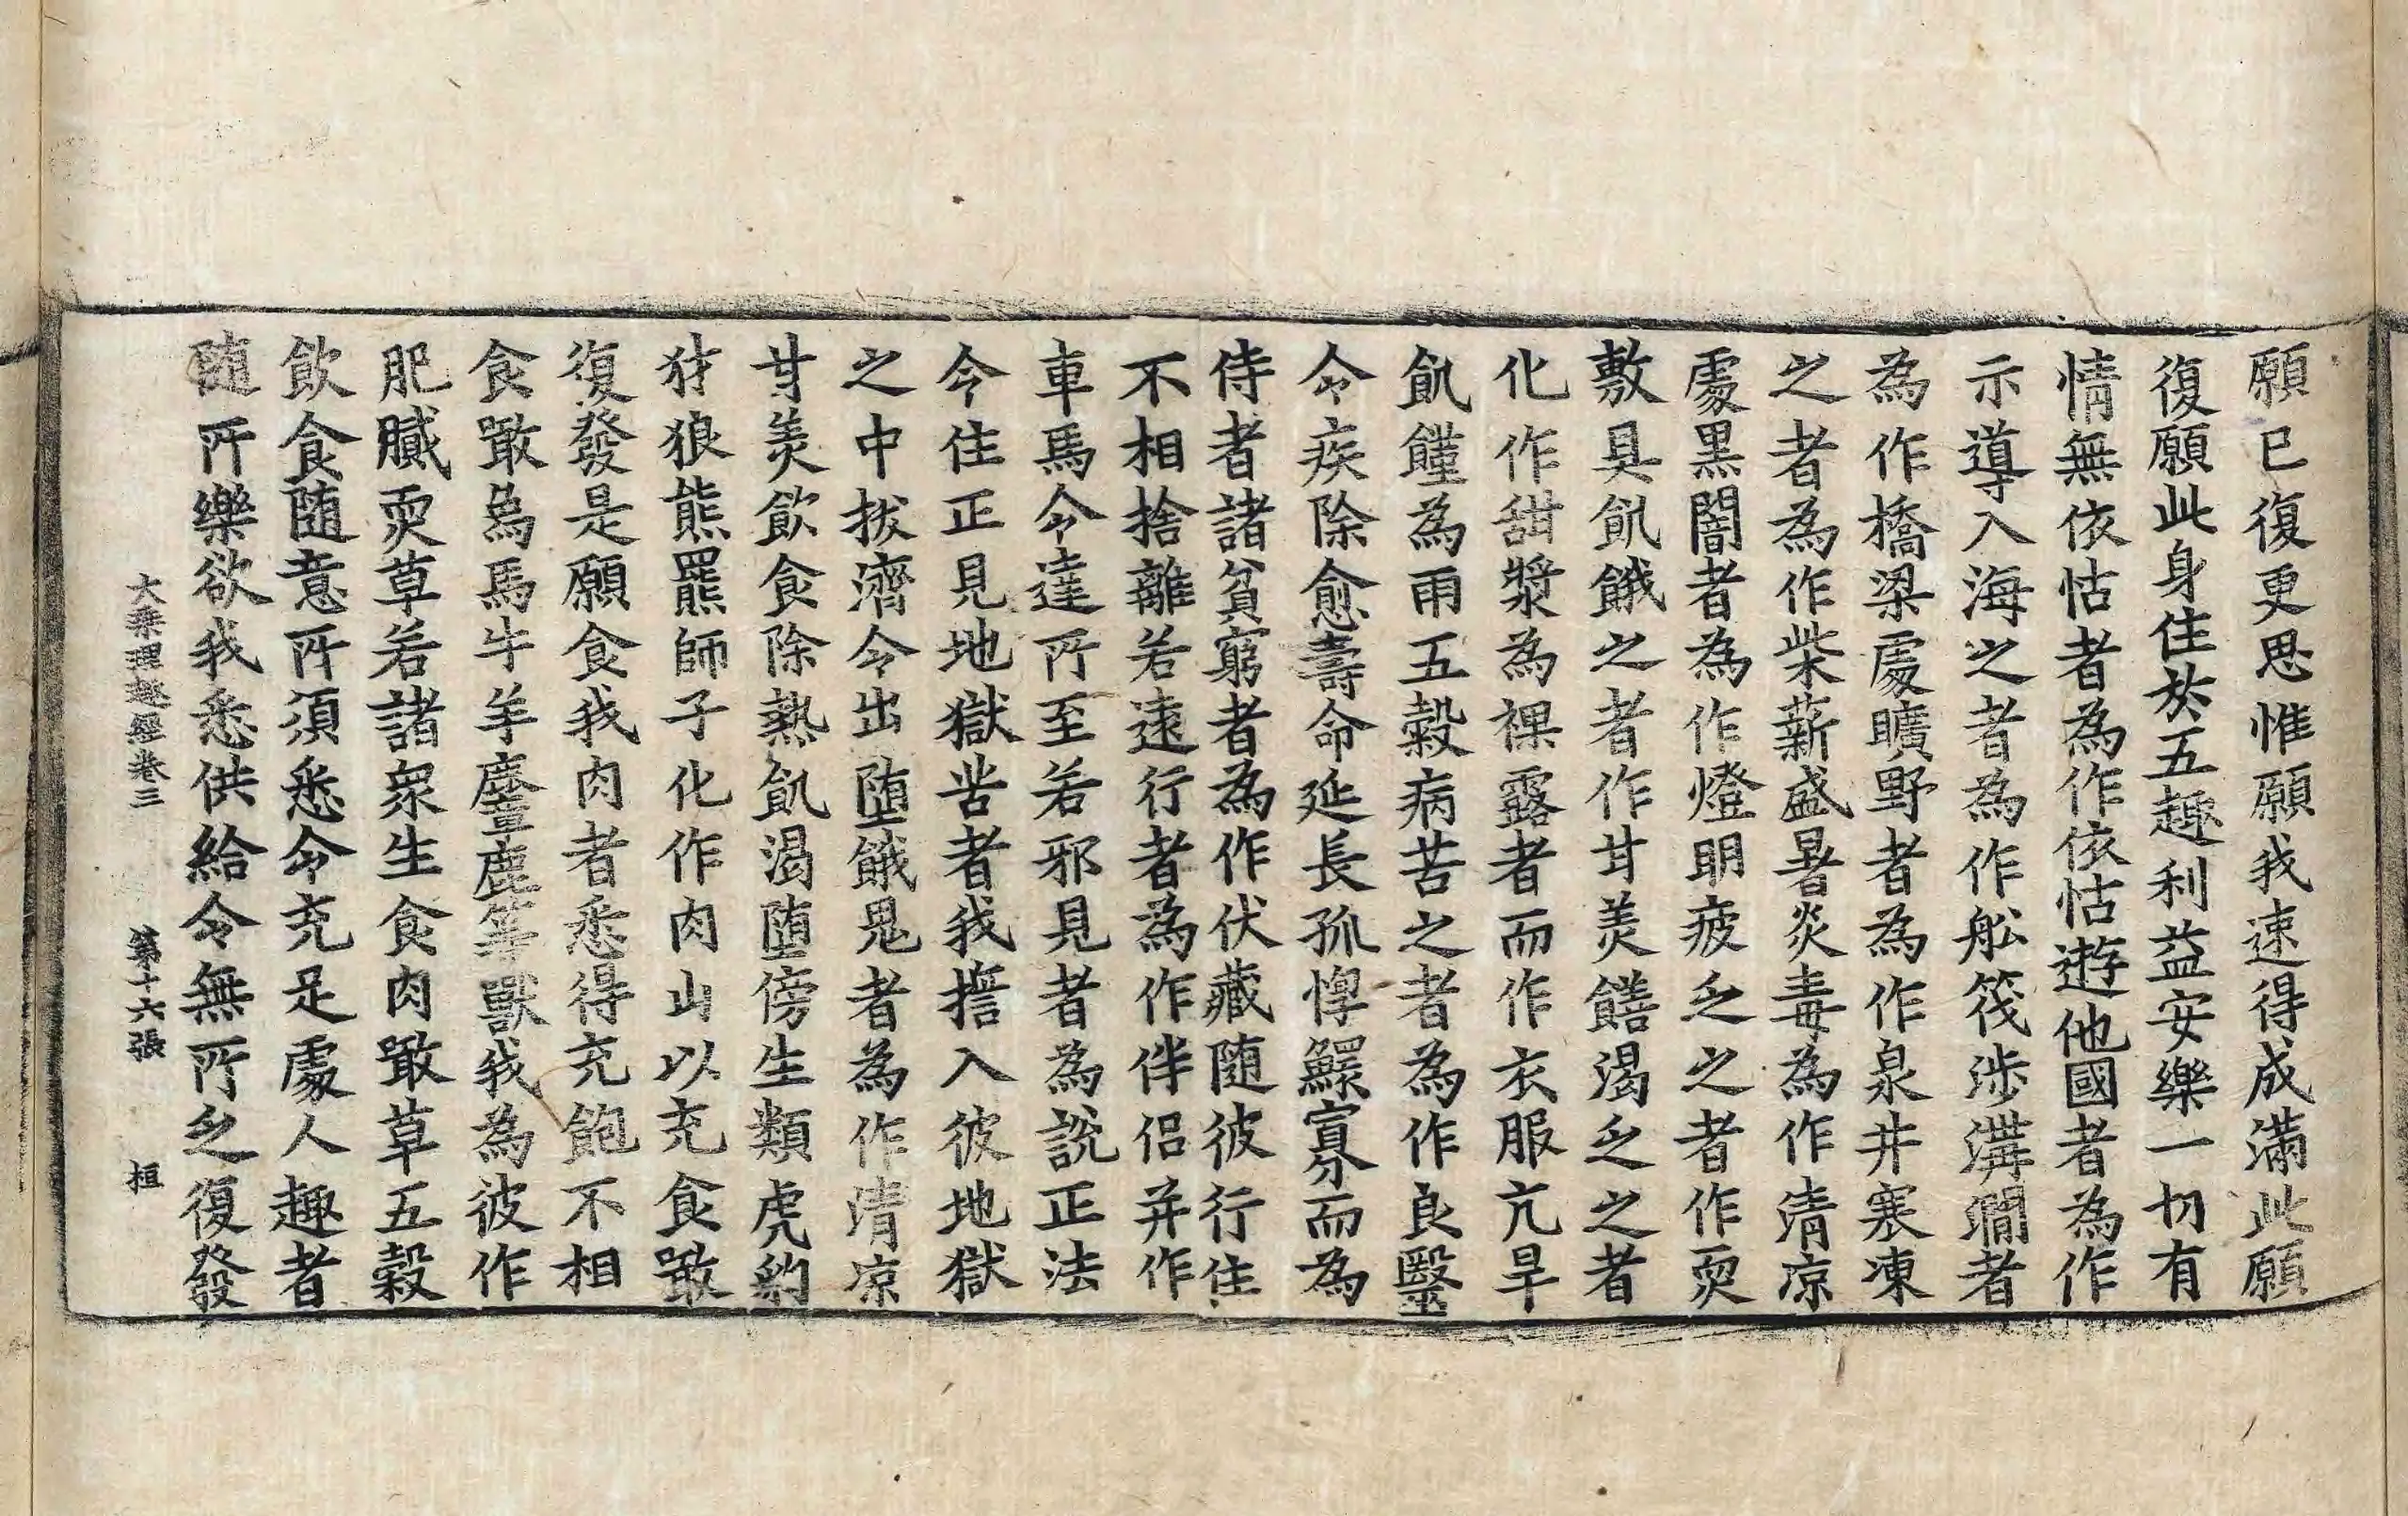 願已復更思惟願我速得成滿此願
復願此身住於五趣利益安樂一切有
情無依怙者為作依怙遊他國者為作
示導入海之者為作舩筏涉溝㵎者
為作橋梁處曠野者為作泉井寒凍
之者為作柴薪盛暑炎毒為作清涼
處黑闇者為作燈明疲乏之者作耎
敷具飢餓之者作甘羙饍渴乏之者
化作甜漿為裸露者而作衣服亢旱
飢饉為雨五穀病苦之者為作良毉
令疾除愈壽命延長孤惸鰥寡而為
侍者諸貧窮者為作伏藏随彼行住
不相捨離若速行者為作伴侣并作
車馬令達所至若邪見者為說正法
令住正見地獄苦者我擔入彼地獄
之中拔濟令出墮餓鬼者為作清凉
甘羙飲食除熱飢渴墮傍生類虎豹
犲狼熊羆師子化作肉山以充食噉
復發是願食我肉者悉得充飽不相
食噉烏馬牛羊麞鹿等獸我為彼作
肥膩耎草若諸衆生食肉噉草五穀
飲食随意所須悉令充足處人趣者
随所樂欲我悉供給令無所乏復發
大乘理趣經卷三 第十六張 桓